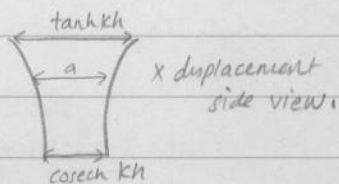 tanh kh
a
x displacement
side view.
cosech kh